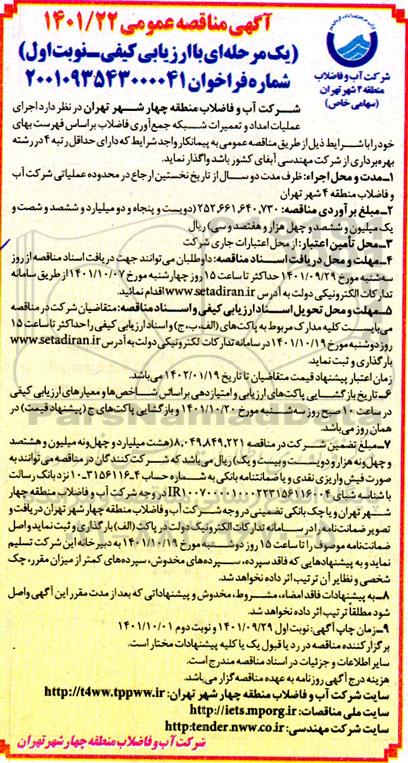 آگهی مناقصه عمومی ۱۴۰۱/۲۲
(یک مرحله‌ای با ارزیابی کیفی_نوبت اول)
شماره فراخوان ۲۰۰۱۰۹۳۵۴۳۰۰۰۰۴۱
شرکت آب و فاضلاب
منطقه ۴ شهر تهران
(سهامی خاص)
شرکت آب و فاضلاب منطقه چهار شهر تهران در نظر دارد اجرای
عملیات امداد و تعمیرات شبکه جمع‌آوری فاضلاب براساس فهرست بهای
خود را با شرایط ذیل از طریق مناقصه عمومی به پیمانکار واجد شرایط که دارای حداقل رتبه ۴ در رشته
بهره‌برداری از شرکت مهندسی آبفای کشور باشد واگذار نماید.
۱_مدت و محل اجراء: ظرف مدت دو سال از تاریخ نخستین ارجاع در محدوده عملیاتی شرکت آب
و فاضلاب منطقه ۴ شهر تهران
۲_مبلغ برآوردی مناقصه: ۲۵۲,۶۶۱,۶۴۰,۷۳۰ (دویست و پنجاه و دو میلیارد و ششصد و شصت و
یک میلیون و ششصد و چهل هزار و هفتصد و سی) ریال
۳_محل تأمین اعتبار: از محل اعتبارات جاری شرکت
۴_مهلت و محل دریافت اسناد مناقصه: داوطلبان می‌توانند جهت دریافت اسناد مناقصه از روز
سه‌شنبه مورخ ۱۴۰۱/۰۹/۲۹ حداکثر تا ساعت ۱۵ روز چهارشنبه مورخ ۱۴۰۱/۱۰/۰۷ از طریق سامانه
تدارکات الکترونیکی دولت به آدرس www.setadiran.ir اقدام نمایند.
۵_مهلت و محل تحویل اسناد ارزیابی کیفی و اسناد مناقصه: متقاضیان شرکت در مناقصه
می‌بایست کلیه مدارک مربوط به پاکت‌های (الف،ب،ج) و اسناد ارزیابی کیفی را حداکثر تا ساعت ۱۵
روز دوشنبه مورخ ۱۴۰۱/۱۰/۱۹ در سامانه تدارکات الکترونیکی دولت به آدرس www.setadiran.ir
بارگذاری و ثبت نماید.
زمان اعتبار پیشنهاد قیمت متقاضیان تا تاریخ ۱۴۰۲/۰۱/۱۹ می‌باشد.
۶_تاریخ بازگشایی پاکت‌های ارزیابی و امتیازدهی براساس شاخص‌ها و معیارهای ارزیابی کیفی
در ساعت ۱۰ صبح روز سه‌شنبه مورخ ۱۴۰۱/۱۰/۲۰ و بازگشایی پاکت‌های ج (پیشنهاد قیمت) در
همان روز می‌باشد.
۷_مبلغ تضمین شرکت در مناقصه ۸,۰۴۹,۸۴۹,۲۲۱ (هشت میلیارد و چهل و نه میلیون و هشتصد
و چهل و نه هزار و دویست و بیست و یک) ریال می‌باشد که شرکت‌کنندگان در مناقصه می‌توانند به
صورت فیش واریزی نقدی و یا ضمانتنامه بانکی به شماره حساب ۴_۱۰.۳۱۵۶۱۱۶ نزد بانک رسالت
در وجه شرکت آب و فاضلاب منطقه چهار
شهر تهران و یا چک بانکی تضمینی در وجه شرکت آب و فاضلاب منطقه چهار شهر تهران دریافت و
تصویر ضمانتنامه را در سامانه تدارکات الکترونیک دولت در پاکت (الف) بارگذاری و ثبت نماید و اصل
ضمانت‌نامه موصوف را تا ساعت ۱۵ روز دوشنبه مورخ ۱۴۰۱/۱۰/۱۹ به دبیرخانه این شرکت تسلیم
نماید و به پیشنهادهایی که فاقد سپرده، سپرده‌های مخدوش، سپرده‌های کمتر از میزان مقرر، چک
شخصی و نظایر آن ترتیب اثر داده نخواهد شد.
۸_به پیشنهادات فاقد امضاء، مشروط، مخدوش و پیشنهاداتی که بعد از مدت مقرر این آگهی واصل
شود مطلقاً ترتیب اثر داده نخواهد شد.
۹_زمان چاپ آگهی: نوبت اول ۱۴۰۱/۰۹/۲۹ و نوبت دوم ۱۴۰۱/۱۰/۰۱
برگزارکننده مناقصه در رد یا قبول یک یا کلیه پیشنهادات مختار است.
سایر اطلاعات و جزئیات در اسناد مناقصه مندرج است.
هزینه درج آگهی روزنامه به عهده مناقصه‌گزار می‌باشد.
سایت شرکت آب و فاضلاب منطقه چهار شهر تهران: http://t4ww.tppww.ir
سایت ملی مناقصات: http://iets.mporg.ir
سایت شرکت مهندسی: http:tender.nww.co.ir
شرکت آب و فاضلاب منطقه چهار شهر تهران